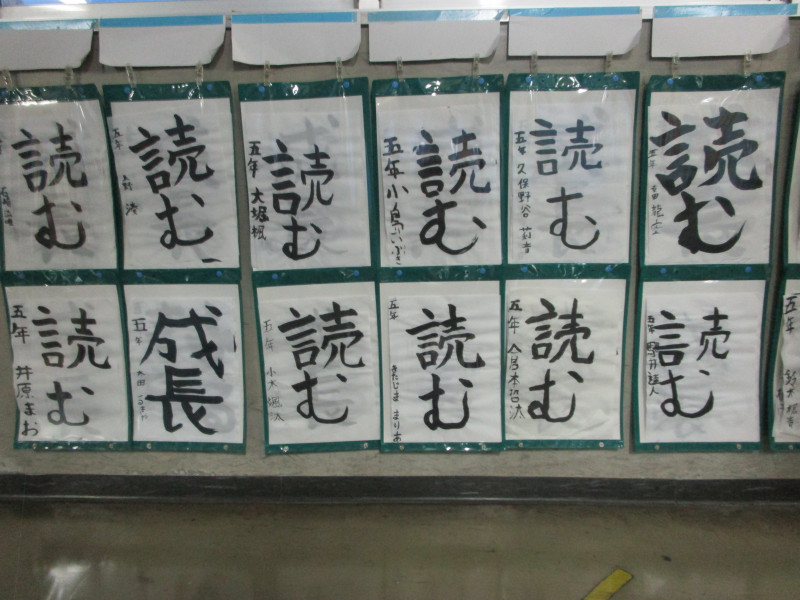 読む
読む
五年
読む
五年 大堀楓
読む
五年 小島いぶき
読む
五年 久保野谷
読む
五年
読む
五年 井原まお
成長
五年 太田
読む
五年 小木
読む
五年 きたじま まりあ
読む
五年
読む
五年
五年
鈴木